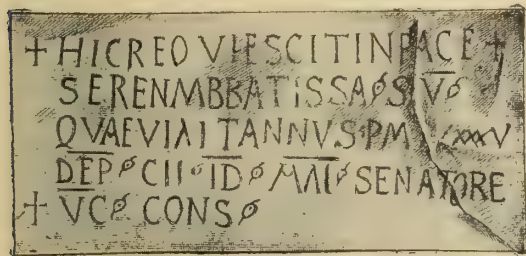 + HIC REQVIESCIT IN PACE +
SERENA ABBATISSA S V
QVAE VIXIT ANNVS PM LXXXV
DEP CII ID MAI SENATORE
+ VC CONS